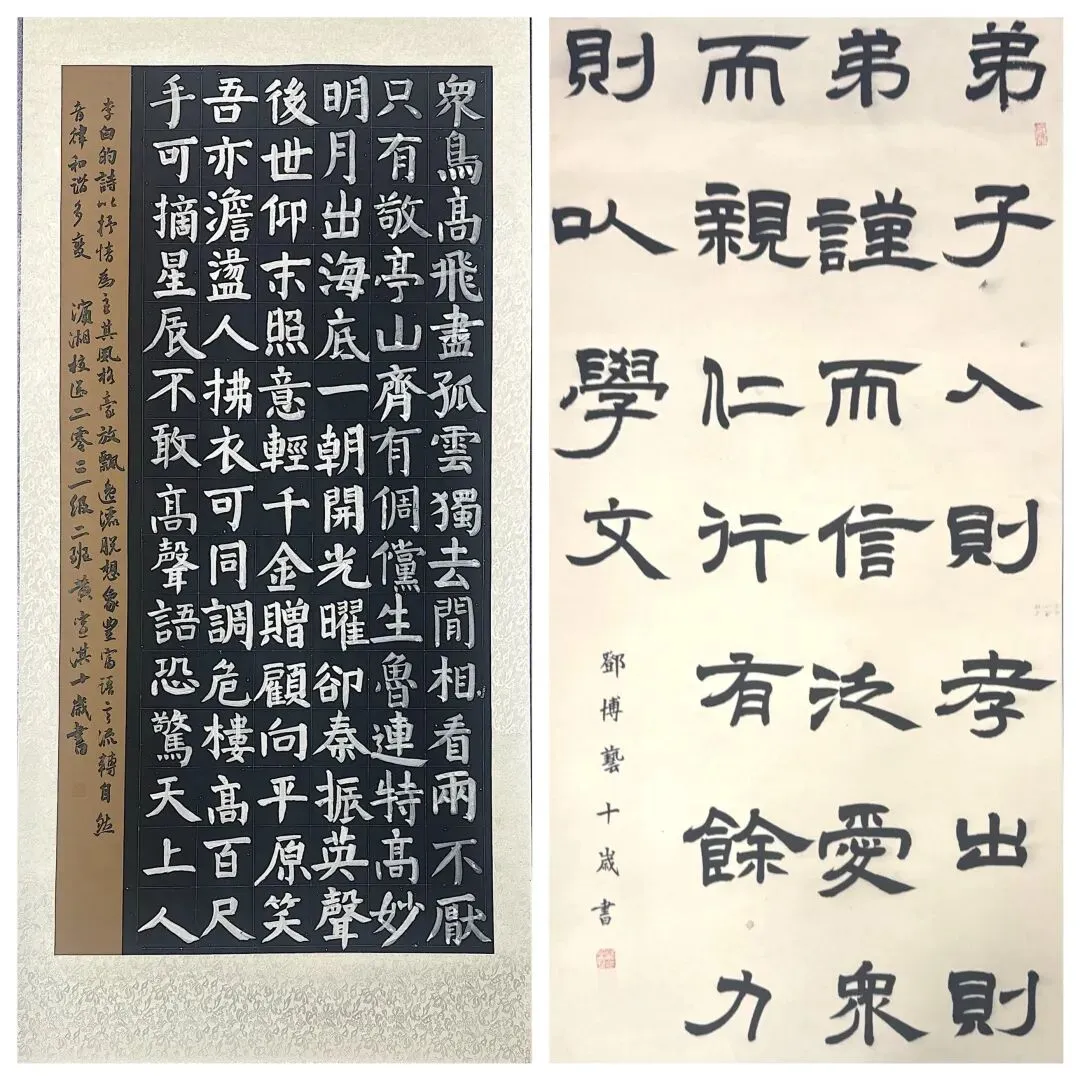 衆鳥高飛盡孤雲獨去閒相看兩不厭
只有敬亭山齊有倜儻生魯連特高妙
明月出海底一朝開光曜卻秦振英聲
後世仰末照意輕千金贈顧向平原笑
吾亦澹盪人拂衣可同調危樓高百尺
手可摘星辰不敢高聲語恐驚天上人
李白的詩以抒情為主其風格豪放飄逸灑脫想象豐富語言流轉自然
音律和諧多變 濱湘校區二零三一級二班黃淇十歲書
弟子入則孝出則
弟謹而信泛愛衆
而親仁行有餘力
則以學文
鄧博藝十歲書